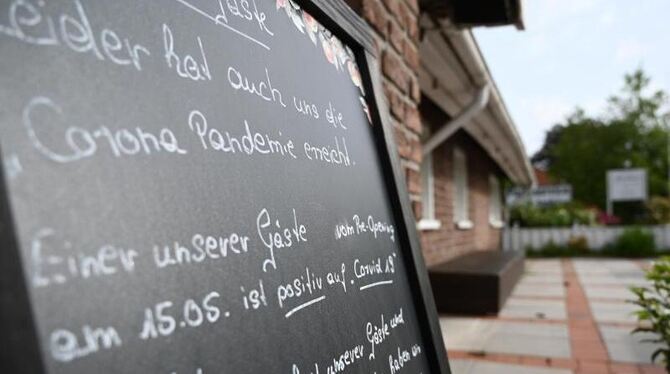 Gäste
Leider hat auch uns die
"Corona Pandemie erreicht.
Einer unserer Gäste vom Pre-Opening
am 15.05. ist positiv auf "Corvid 19"
unserer Gäste und
haben wir